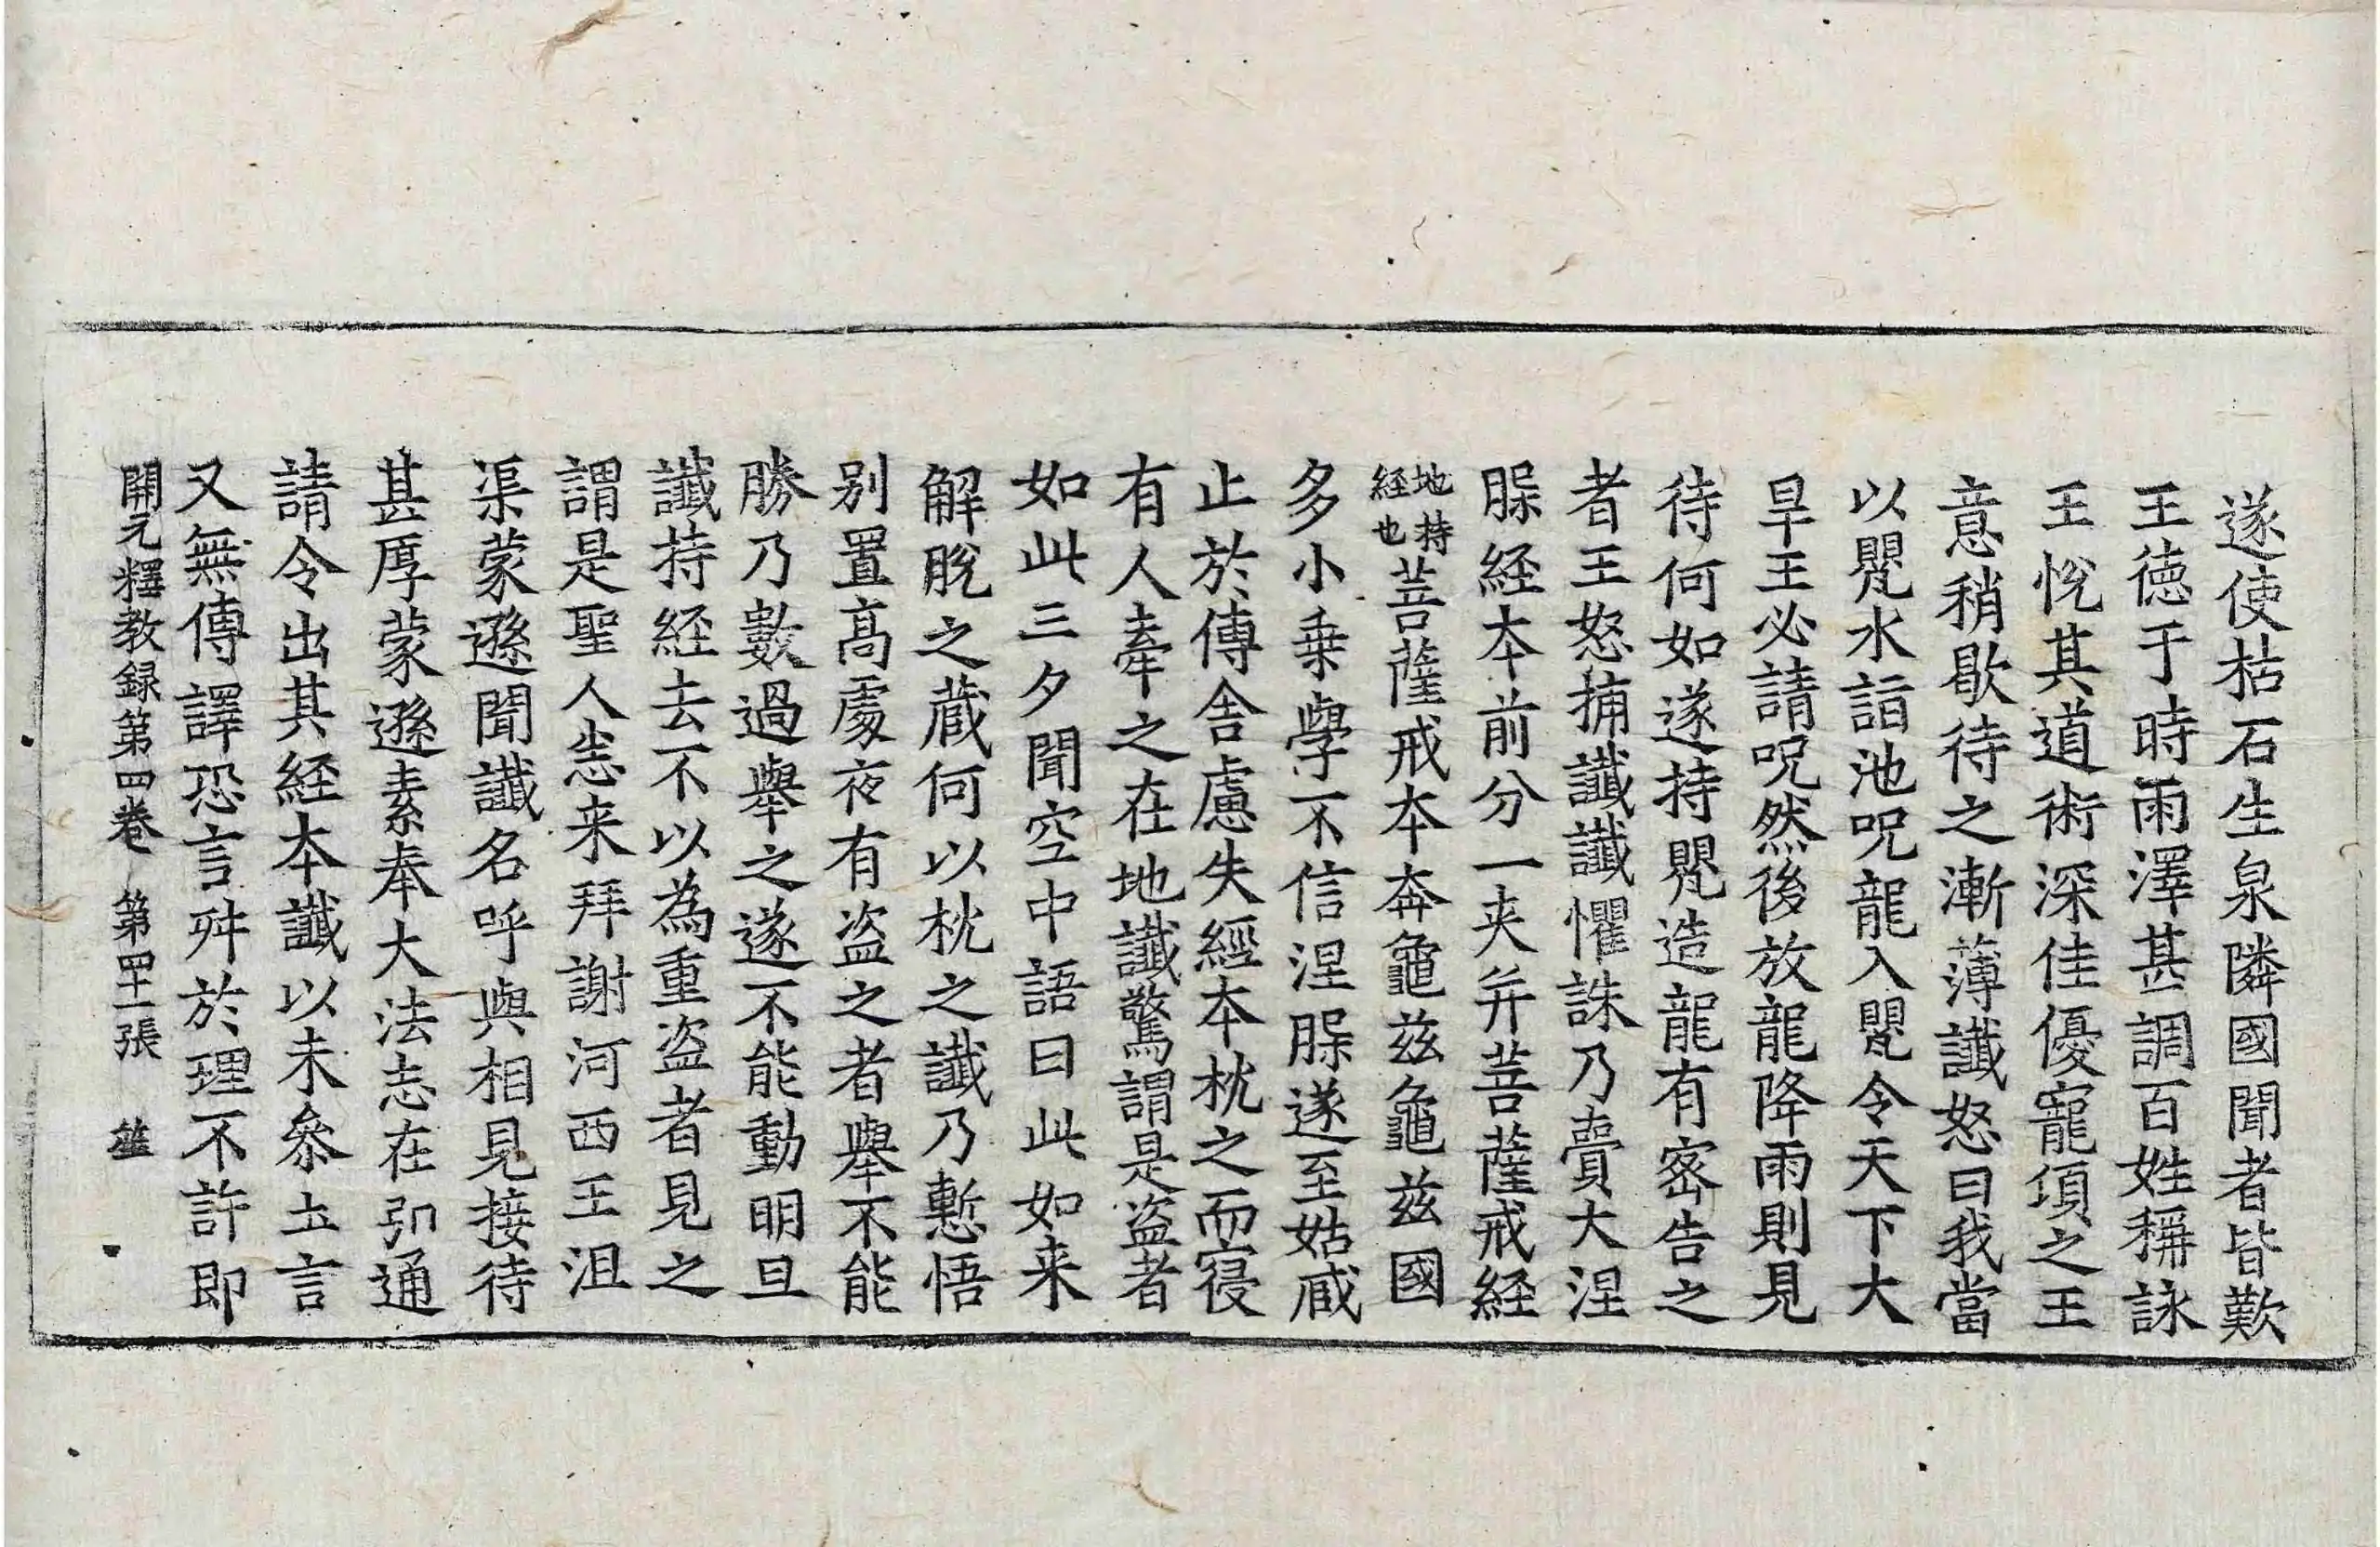 遂使枯石生泉隣國聞者皆歎
王德于時雨澤甚調百姓稱詠
王悅其道術深佳優寵項之王
意稍歇待之漸薄讖怒曰我當
以甖水詣池呪龍入甖令天下大
旱王必請呪然後放龍降雨則見
待何如遂持甖造龍有密告之
者王怒捕讖讖懼誅乃賷大涅
脲経本前分一夹并菩薩戒経
地持経也菩薩戒本奔龜兹龜兹國
多小乗學不信涅脲遂至姑臧
止於傳舎慮失經本枕之而寝
有人牽之在地讖驚謂是盗者
如此三夕聞空中語曰此如来
解脫之蔵何以枕之讖乃慙悟
别置高處夜有盗之者舉不能
勝乃數過舉之遂不能動明旦
讖持経去不以為重盗者見之
謂是聖人悉来拜謝河西王沮
渠蒙遜聞讖名呼與相見接待
甚厚蒙遜素奉大法志在弘通
請令出其経本讖以未叅土言
又無傳譯恐言舛於理不許即
開元釋教録第四卷 第四十一張